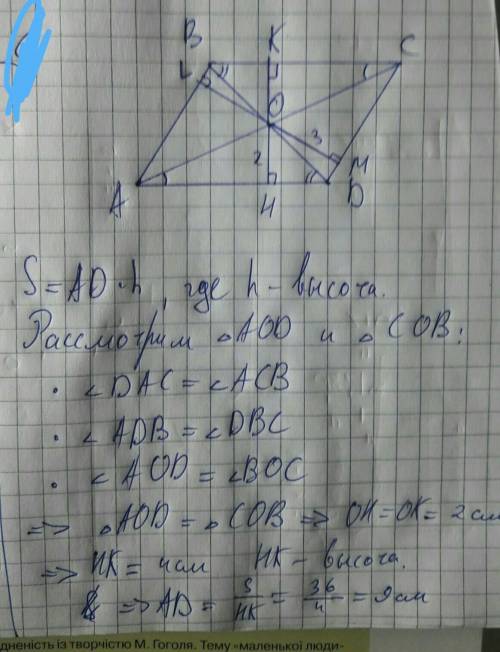 B K C
L
O
3
2 M
A H D
S = AD · h, где h - высота.
Рассмотрим △AOD и △COB:
· ∠DAC = ∠ACB
· ∠ADB = ∠DBC
· ∠AOD = ∠BOC
=> △AOD = △COB => OH = OK = 2 см
=> HK = 4 см HK - высота.
=> AD = S/HK = 36/4 = 9 см
дненість із творчістю М. Гоголя. Тему «маленької люди-